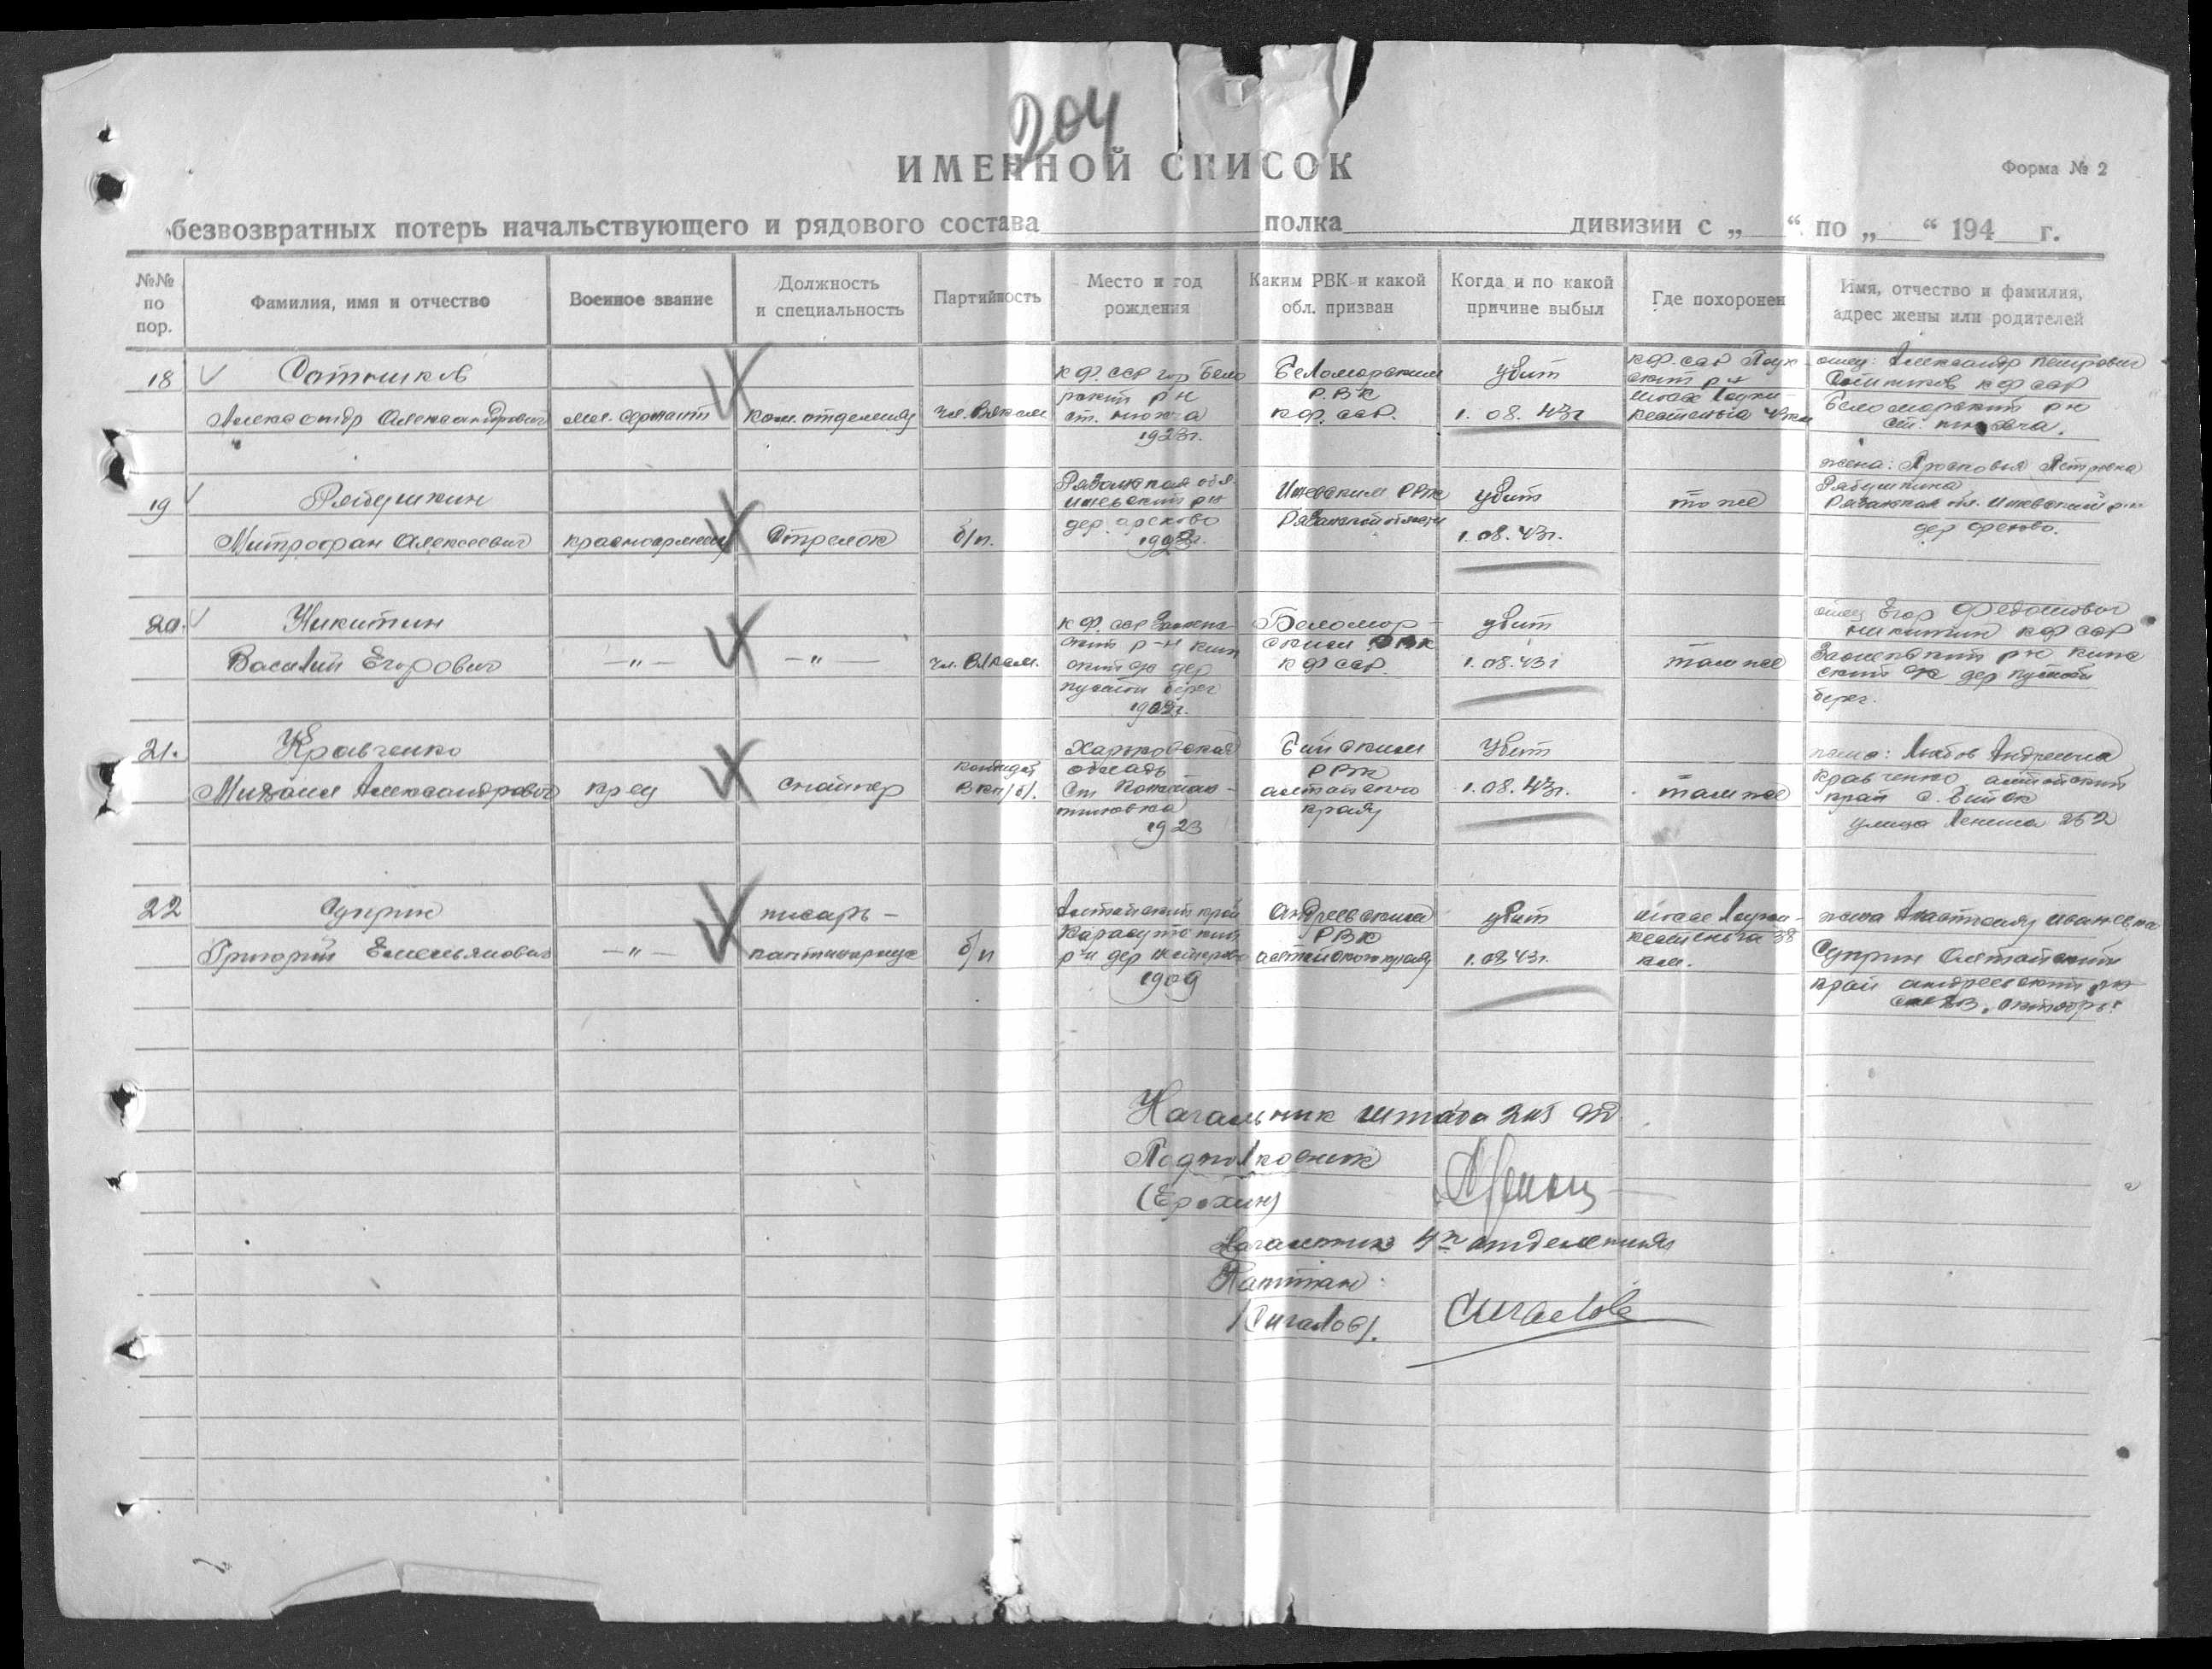 204
ИМЕННОЙ СПИСОК
Форма № 2
безвозвратных потерь начальствующего и рядового состава полка дивизии с „ “ по „ “ 194 г.
№№ по пор.
Фамилия, имя и отчество
Военное звание
Должность и специальность
Партийность
Место и год рождения
Каким РВК и какой обл. призван
Когда и по какой причине выбыл
Где похоронен
Имя, отчество и фамилия, адрес жены или родителей
18
Сотников
Александр Александрович
мл. сержант
ком. отделения
чл. ВЛКСМ
к ф. сср гор Бело
р н
ст. нюхча
1923г.
Беломорским
РВК
к ф. сср.
убит
1. 08. 43г
к ф. сср Лоух
ский р н
шоссе Лоухи
кестеньга
отец: Александр Петрович
Сотников к ф сср
Беломорский р н
ст. нюхча.
19
Рябушкин
Митрофан Алексеевич
красноармеец
Стрелок
б/п.
Рязанская обл.
Ижевский р н
дер
Ижевским РВК
Рязанской области
убит
1. 08. 43г.
то же
жена: Прасковья Петровна
Рябушкина
Рязанская обл. Ижевский р-н
дер
20.
Никитин
Василий Егорович
— „ —
— „ —
чл. ВЛКСМ.
к ф. сср
ский р-н
дер
берег
Беломор-
ским РВК
к ф сср.
убит
1. 08. 43г
там же
отец Егор
Никитин к ф сср
р н
дер
берег.
21.
Кравченко
Михаил Александрович
кр-ец
снайпер
кандидат
ВКП/б/.
Харьковская
область
ст
1923
Бийским
РВК
алтайского
края
Убит
1. 08. 43г.
там же
жена: Любовь Андреевна
Кравченко алтайский
край с. Бийск
улица Ленина 252
22
Суприн
Григорий Емельянович
— „ —
писарь -
б/п
Алтайский край
Карасукский
р-н дер
1909
Андреевским
РВК
алтайского края
убит
1. 08 43г.
шоссе Лоухи-
кестеньга 38
км.
жена Анастасия Ивановна
Суприн Алтайский
край андреевский р н
Начальник штаба 205 сд
Подполковник
(Ерохин)
Начальник 4го отделения
Капитан
/Сигалов/.